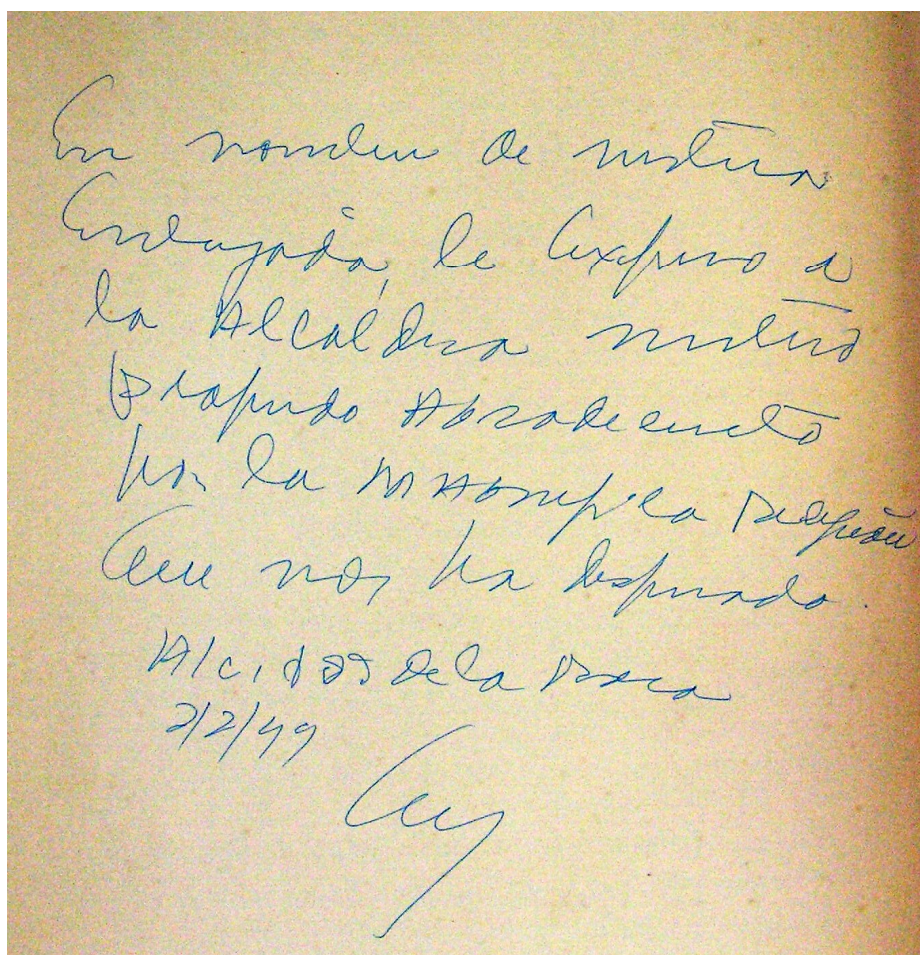 En nombre de nuestra
Embajada, le expreso a
la Alcaldesa nuestro
profundo agradecimiento
por la magnífica recepción
que nos ha dispensado.
Alcides de la
2/2/99